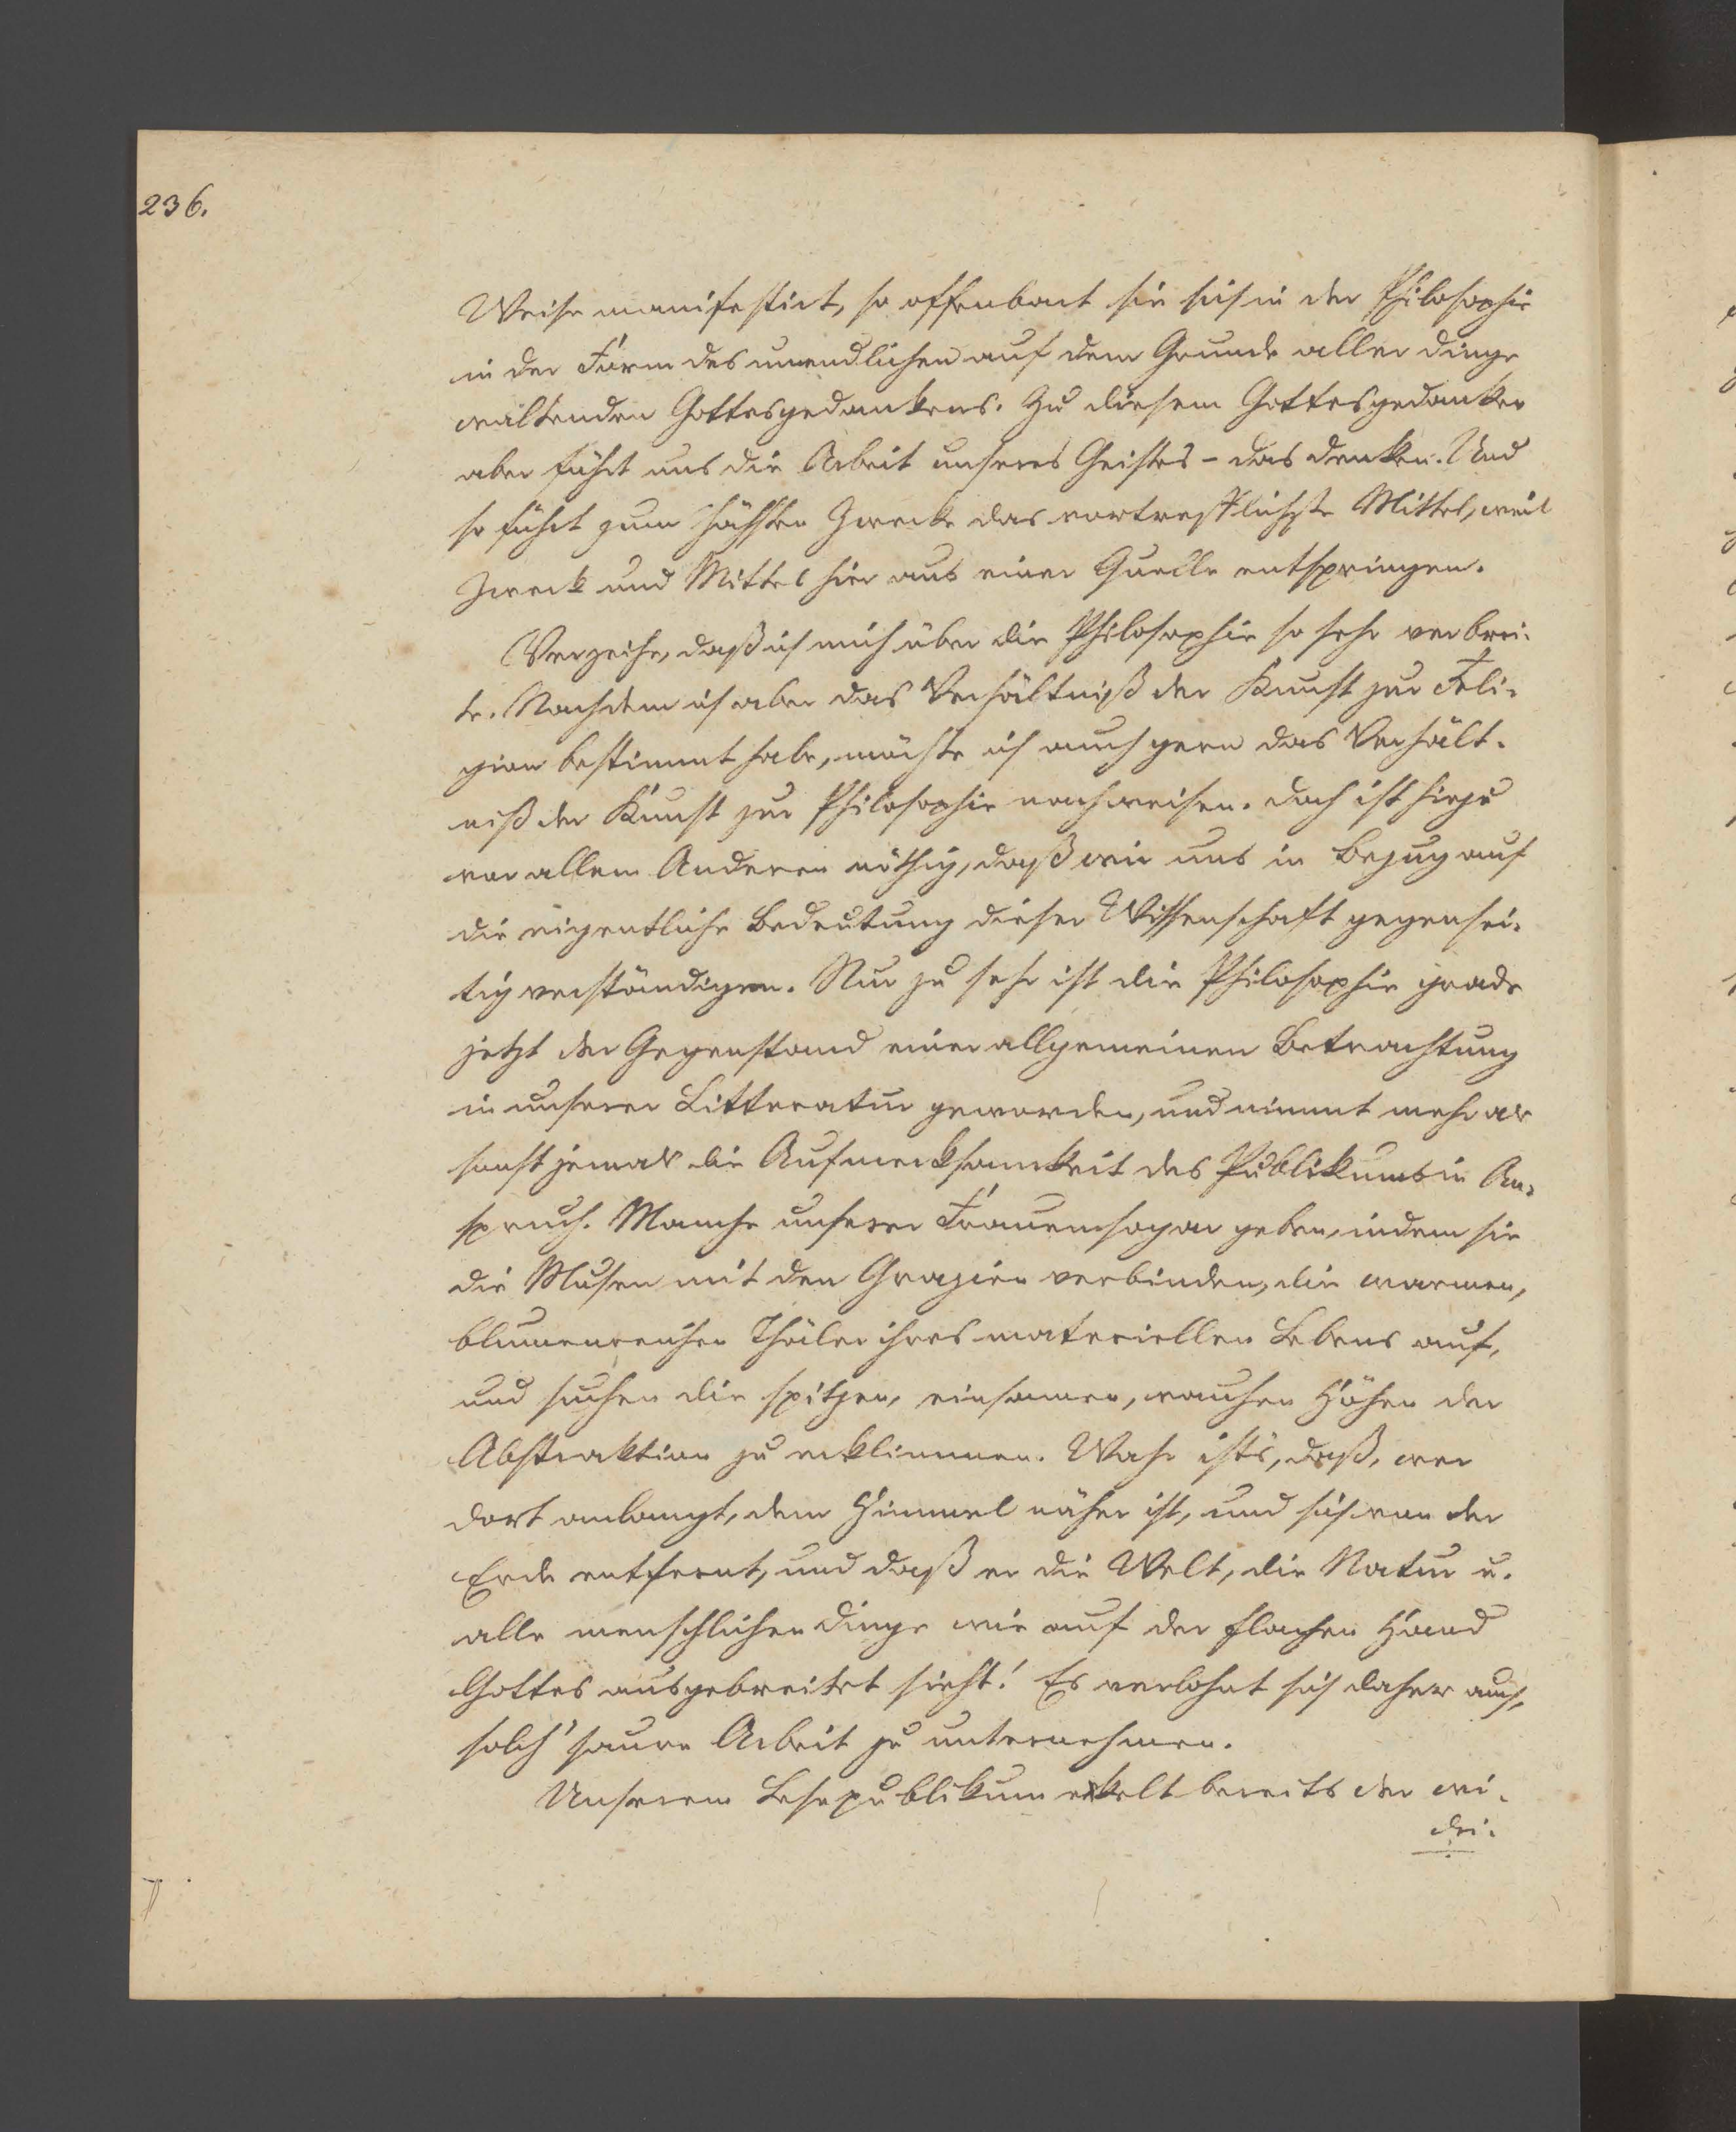 236.
Weise manifestirt, so offenbart sie sich in der Philosophie
in der Form des unendlichen auf dem Grunde aller Dinge
waltenden Gottesgedankens. Zu diesem Gottesgedanken
aber führt uns die Arbeit unseres Geistes - das Denken. Und
so führt zum höchsten Zwecke das vortrefflichste Mittel, weil
Zweck und Mittel hier aus einer Quelle entspringen.
Verzeihe, daß ich mich über die Philosophie so sehr verbrei-
te. Nachdem ich aber das Verhältniß der Kunst zur Reli-
gion bestimmt habe, möchte ich auch gern das Verhält-
niß der Kunst zur Philosophie nachweisen. Doch ist hiezu
vor allem Anderen nöthig, daß wir uns in Bezug auf
die eigentliche Bedeutung dieser Wissenschaft gegensei-
tig verständigen. Nur zu sehr ist die Philosophie grade
jetzt der Gegenstand einer allgemeinen Betrachtung
in unserer Litteratur geworden, und nimmt mehr als
sonst jemals die Aufmerksamkeit des Publikums in An-
spruch. Manche unserer Frauen sogar geben, indem sie
die Musen mit den Grazien verbinden, die warmen,
blumenreichen Thäler ihres materiellen Lebens auf,
und suchen die spitzen, einsamen, rauhen Höhen der
Abstraktion zu erklimmen. Wahr ist's, daß, wer
dort anlangt, dem Himmel näher ist, und sich von der
Erde entfernt, und daß er die Welt, die Natur u.
alle menschlichen Dinge wie auf der flachen Hand
Gottes ausgebreitet sieht! Es verlohnt sich daher auch,
solch' saure Arbeit zu unternehmen.
Unserem Lesepublikum ekelt bereits der wi-
der-